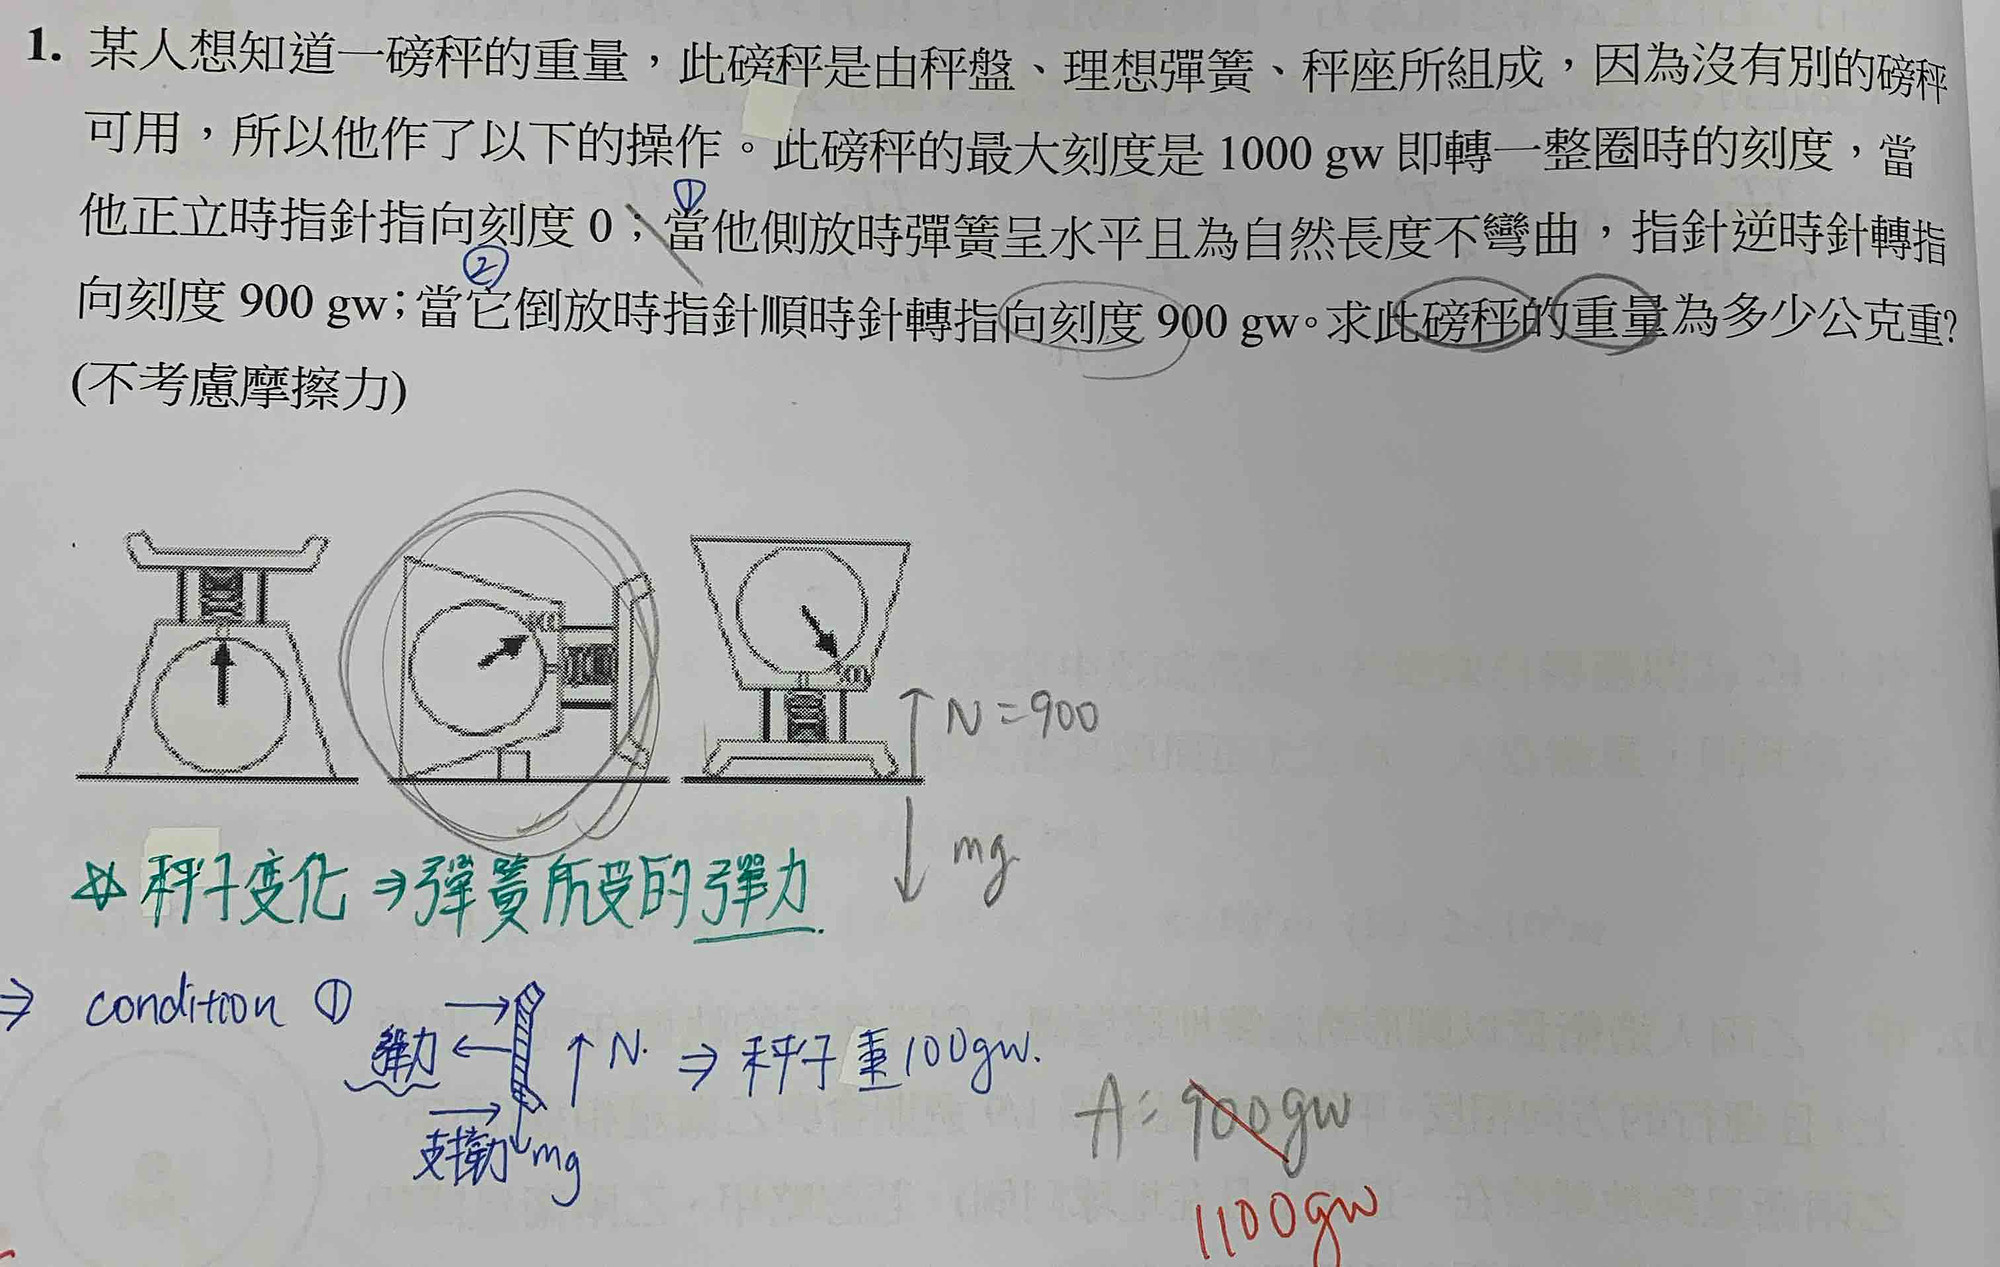 1. 某人想知道一磅秤的重量，此磅秤是由秤盤、理想彈簧、秤座所組成，因為沒有別的磅秤
可用，所以他作了以下的操作。此磅秤的最大刻度是 1000 gw 即轉一整圈時的刻度，當
①
他正立時指針指向刻度 0；當他側放時彈簧呈水平且為自然長度不彎曲，指針逆時針轉指
②
向刻度 900 gw；當它倒放時指針順時針轉指向刻度 900 gw。求此磅秤的重量為多少公克重?
(不考慮摩擦力)
N=900
mg
秤子变化 ⇒ 彈簧所受的彈力.
⇒ condition ①
彈力 N. ⇒ 秤子重100gw.
支撐力 mg
A: 900gw
1100gw